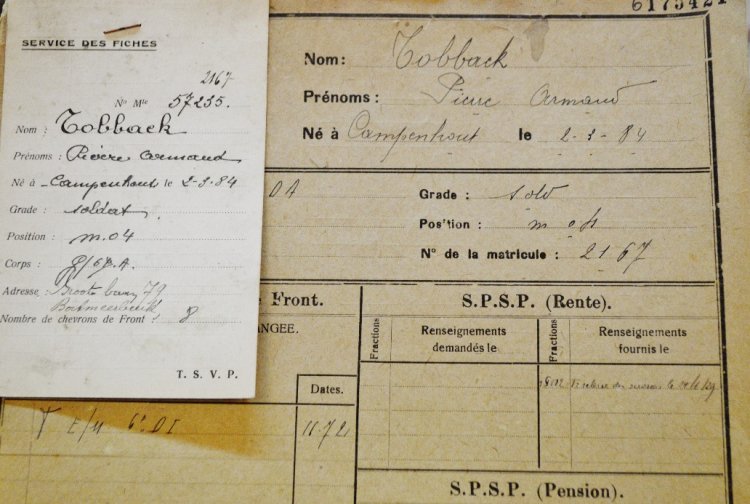 SERVICE DES FICHES
2167
No Mle 57235.
Nom : Tobback
Prénoms : Pierre Armand
Né à Campenhout le 2-3-84
Grade : soldat
Position : m.04
Corps :
Adresse : 79
Nombre de chevrons de Front : 8
T. S. V. P.
6175421
Nom : Tobback
Prénoms : Pierre Armand
Né à Campenhout le 2-3-84
DA
Grade : sold
Position : m 04
N° de la matricule : 2167
e Front.
ANGEE.
Dates.
E/M 6e DI
11-7-21
S.P.S.P. (Rente).
Fractions
Renseignements
demandés le
Fractions
Renseignements
fournis le
S.P.S.P. (Pension).